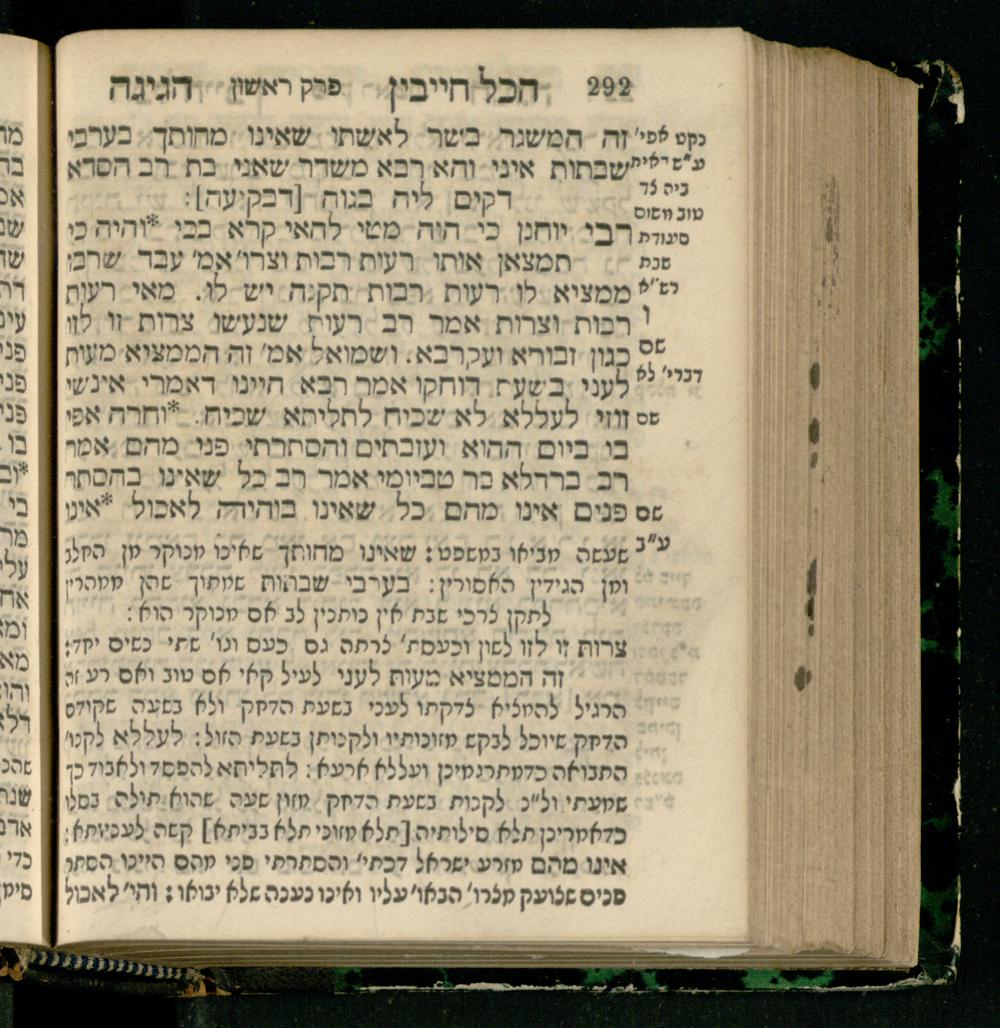 292 הכל חייבין פרק ראשון הגיגה
זה המשגר בשר לאשתו שאינו מחותך בערבי
שבתות איני והא רבא משדר שאני בת רב הסדא
דקים ליה בגוה [דבקיעה]:
רבי יוחנן כי הוה מטי להאי קרא בכי *והיה כי
תמצאן אותו רעות רבות וצרו׳ אמ׳ עבד שרבו
ממציא לו רעות רבות תקנה יש לו. מאי רעות
רבות וצרות אמר רב רעות שנעשו צרות זו לזו
כגון זבורא ועקרבא. ושמואל אמ׳ זה הממציא מעות
לעני בשעת דוחקו אמר רבא היינו דאמרי אינשי
זוזי לעללא לא שכיח לתליתא שכיח. *וחרה אפי
בו ביום ההוא ועזבתים והסתרתי פני מהם אמר
רב ברדלא בר טביומי אמר רב כל שאינו בהסתר
פנים אינו מהם כל שאינו בוהיה לאכול *אינו
שעשה מביאו במשפט: שאינו מחותך שאינו מנוקר מן החלב
ומן הגידין האסורין: בערבי שבתות שמתוך שהן ממהרין
לתקן צרכי שבת אין נותנין לב אם מנוקר הוא:
צרות זו לזו לשון וכעסת׳ צרתה גם כעס וגו׳ שתי נשים יחד:
זה הממציא מעות לעני לעיל קאי אם טוב ואם רע זה
הרגיל להמציא צדקתו לעני בשעת הדחק ולא בשעה שקודם
הדחק שיוכל לבקש מזונותיו ולקנותן בשעת הזול: לעללא לקנו׳
התבואה כדמתרגמינן ועללא ארעא: לתליתא להפסד ולאבוד כך
שמעתי ול״נ לקנות בשעת הדחק מזון שעה שהוא תולה בסלו
כדאמרינן תלא סילותיה [תלא מזוני תלא בביתא] קשה לעניותא:
אינו מהם מזרע ישראל דכתי׳ והסתרתי פני מהם היינו הסתר
פנים שצועק מצרו׳ הבאו׳ עליו ואינו נענה שלא יבואו: והי׳ לאכול
נקט אפי׳
ע״ש דאית
ביה צד
טוב משום
סעודת
שבת
דש״א
ו
שם
דברי׳ לא
שם
שם
ע״ב